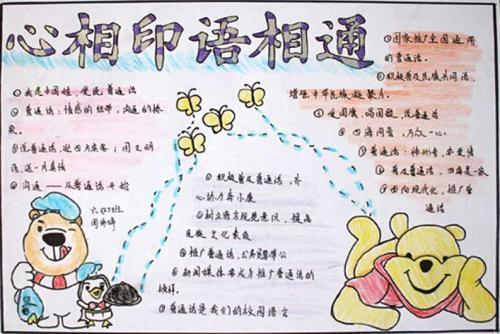 心相印语相通
①我是中国娃，爱说普通话
②普通话：情感的纽带，沟通的桥
梁。
③说普通话，迎四方宾客；用文明
语，送一片真情
④沟通——从普通话开始
①积极普及普通话，齐
心协力奔小康
②树立语言规范意识，提高
民族文化素质
③推广普通话，公务员
④新闻媒体要成为推广普通话的
榜样。
⑤普通话是我们的校园语言
①国家推广全国通用
的普通话。
②积极普及民族共同语，
增强中华民族凝聚力。
爱国旗、唱国歌、说普通话
四海同音，万众一心
普通话：神州音，华夏情
普及普通话，四海是一家
面向现代化，推广普
通话